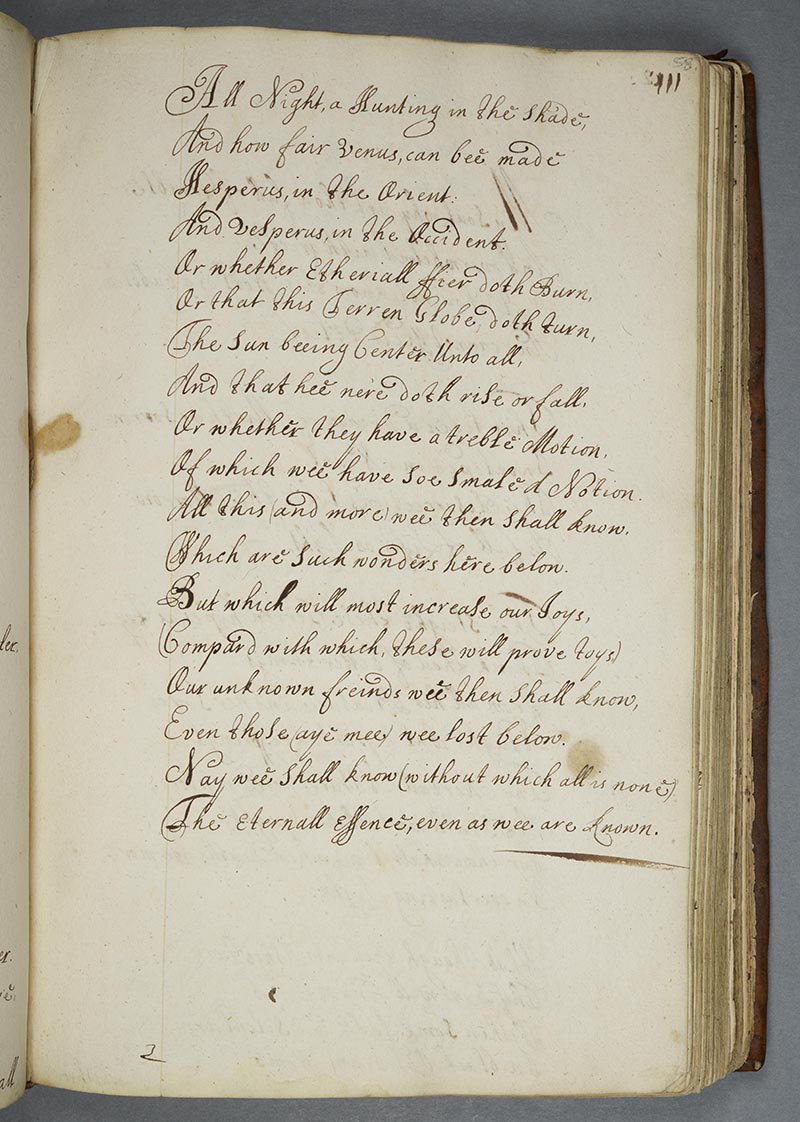 58
111
All Night, a Hunting in the Shade,
And how fair Venus, can bee made
Hesperus, in the Orient:
And Vesperus, in the Occident.
Or whether Etheriall ffier doth Burn,
Or that this Terren Globe, doth turn,
The Sun beeing Center Unto all,
And that hee ne're doth rise or fall,
Or whether they have a treble Motion,
Of which wee have soe smale a Notion.
All this (and more) wee then shall know,
Which are such wonders here below.
But which will most increase our Joys,
(Compar'd with which, these will prove toys)
Our unknown freinds wee then shall know,
Even those (aye mee) wee lost below.
Nay wee shall know (without which all is none)
The Eternall Essence, even as wee are known.
2
ler.
er.
all